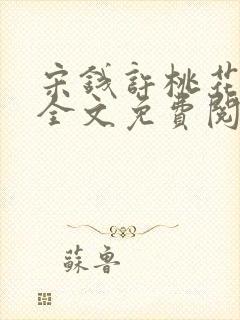 宋錢許桃花
全文免費閱
蘇魯